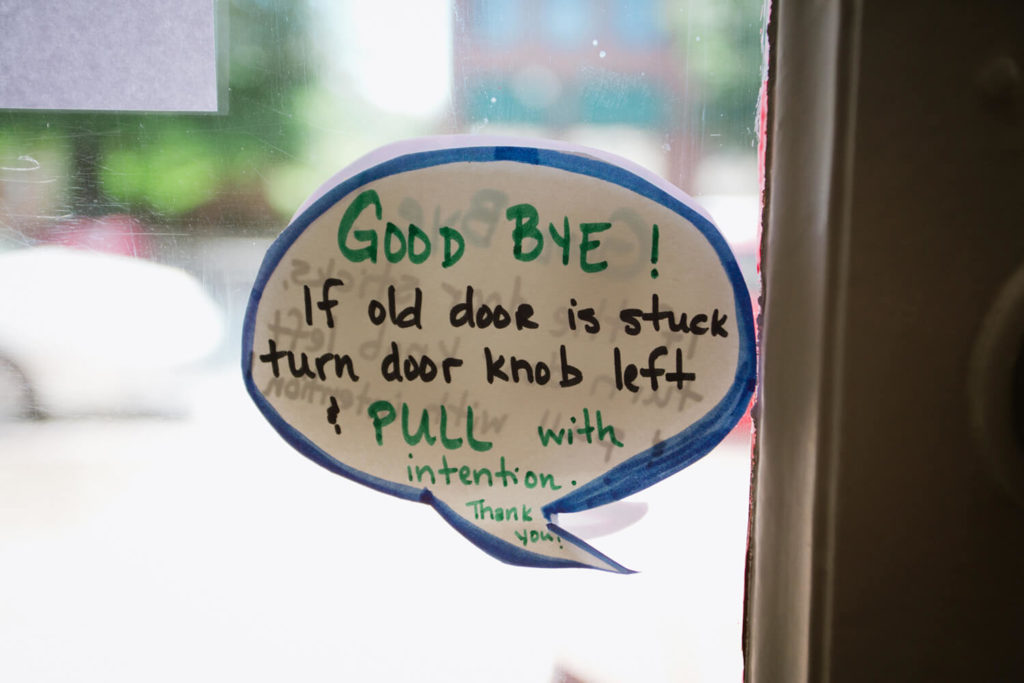 GOOD BYE!
If old door is stuck
turn door knob left
& PULL with
intention.
Thank
you!